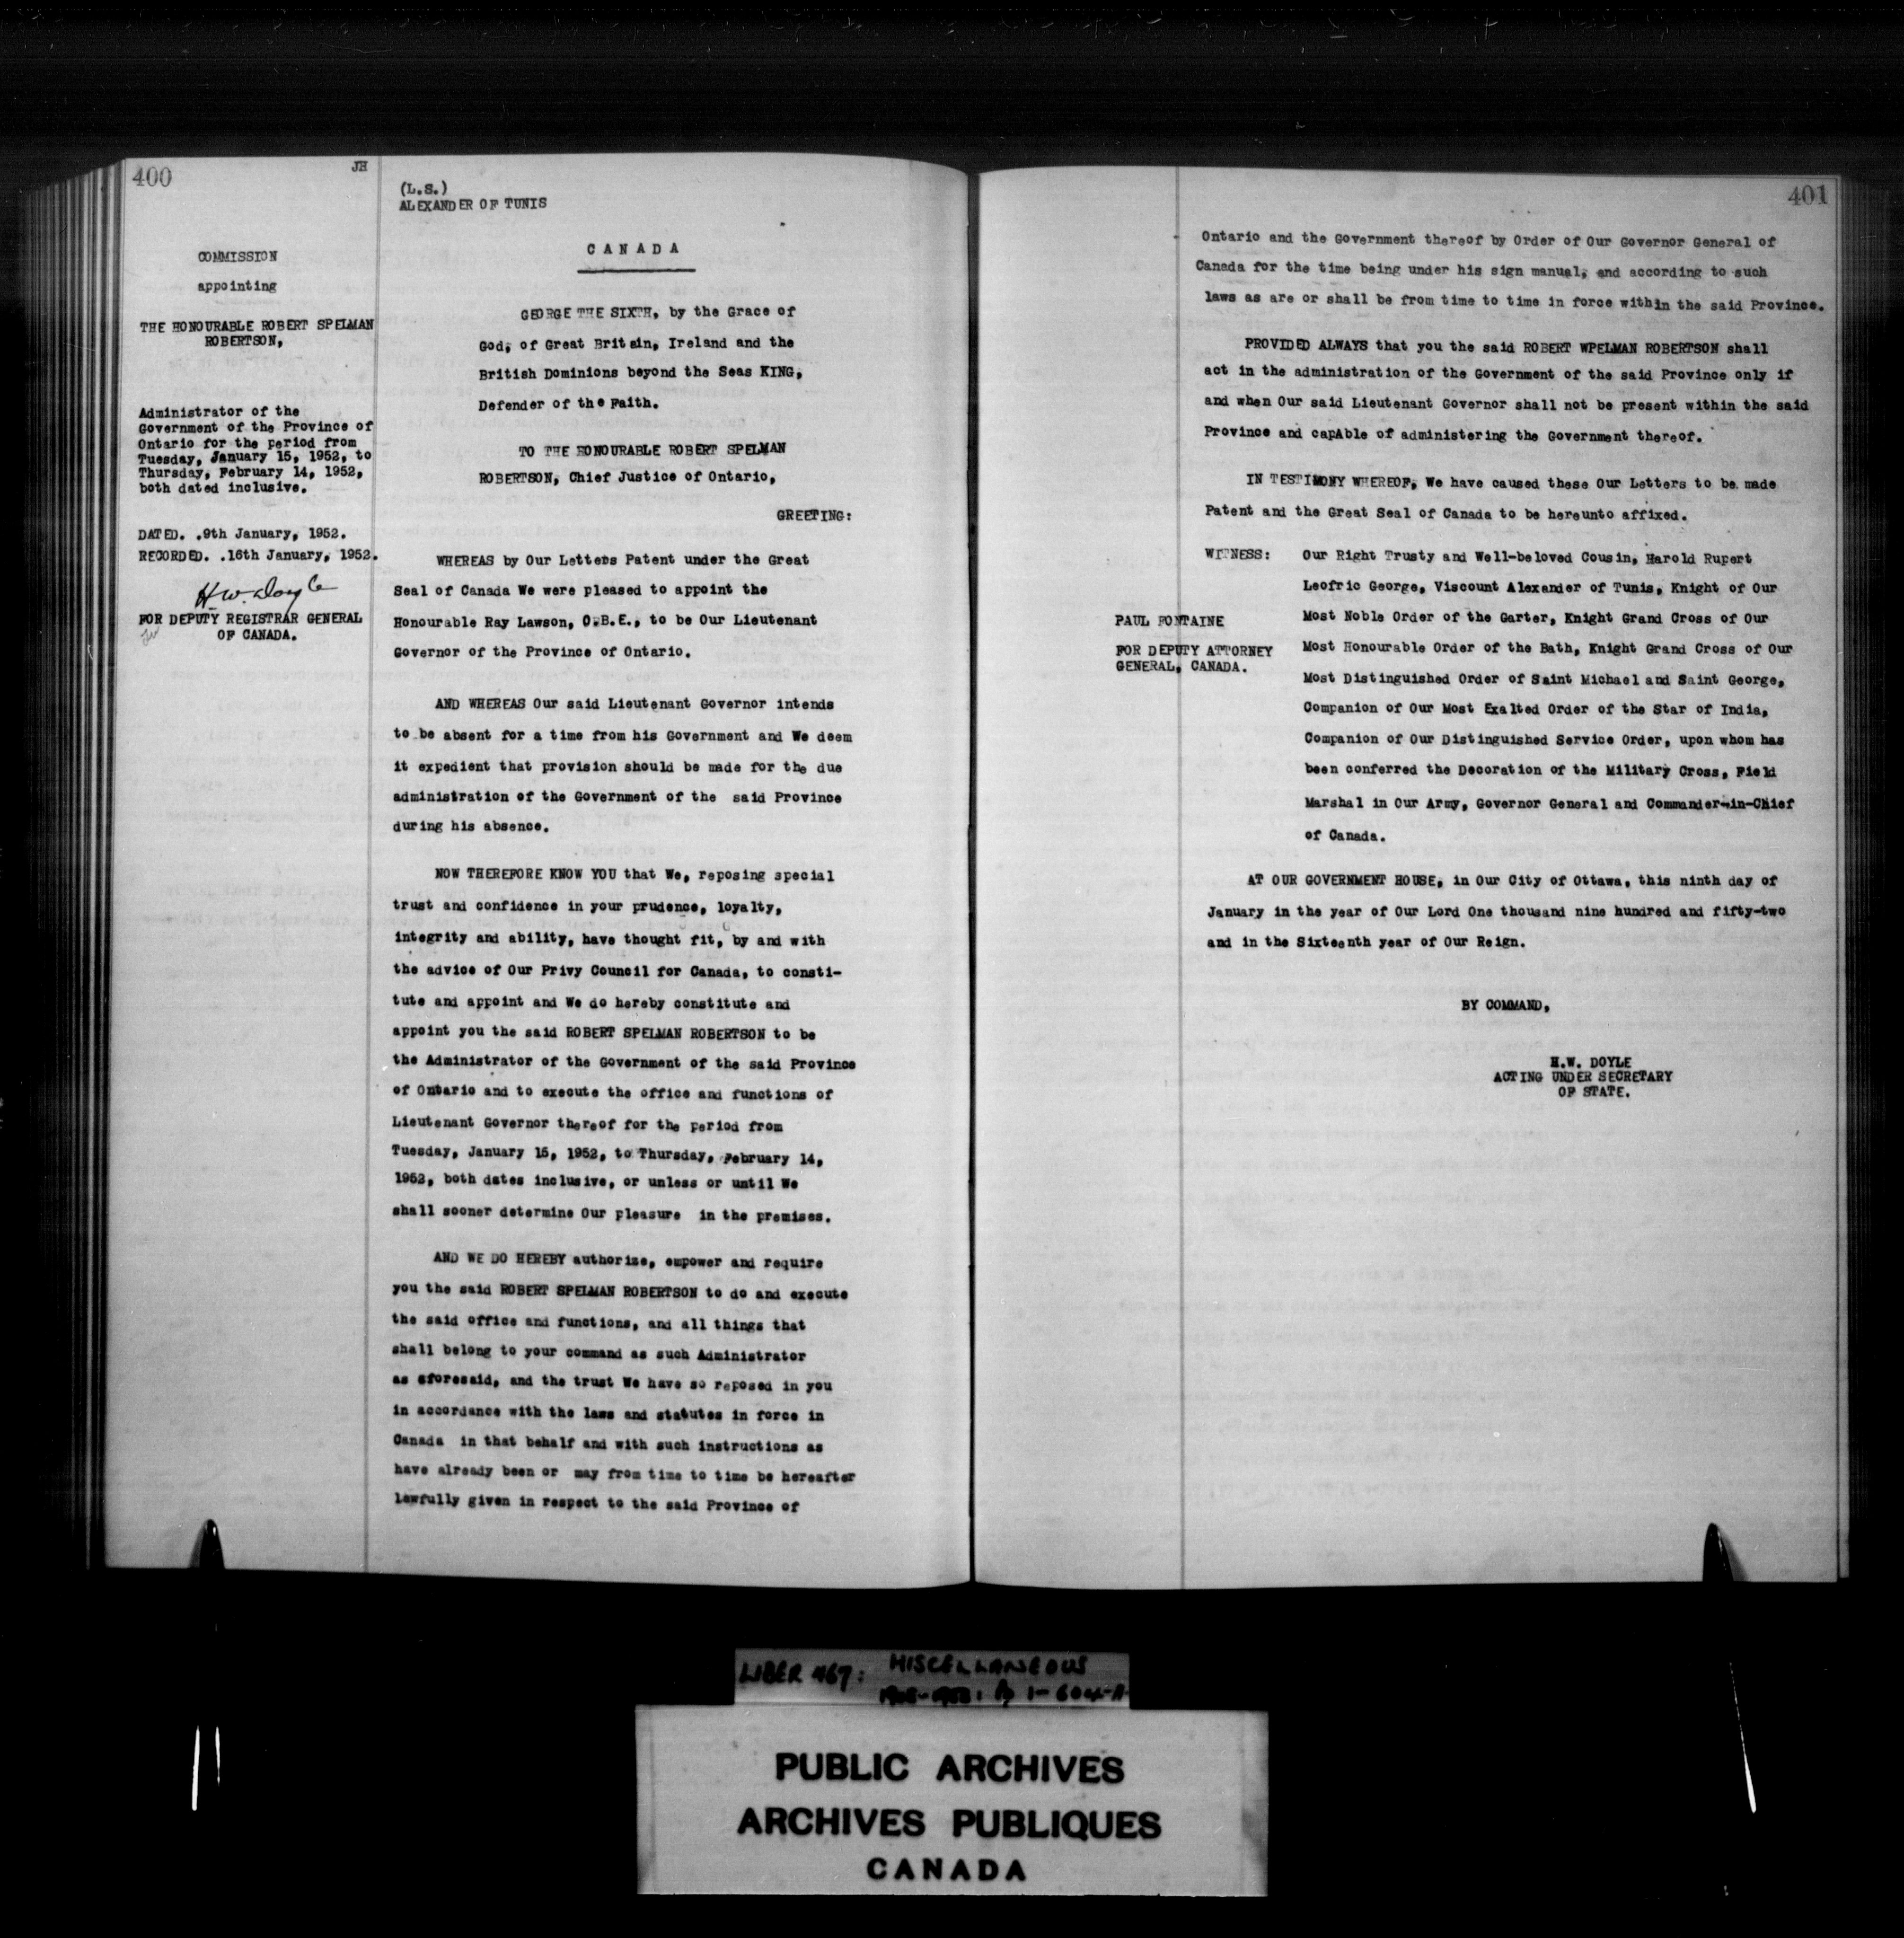 400
JH
COMMISSION
appointing
THE HONOURABLE ROBERT SPELMAN
ROBERTSON,
Administrator of the
Government of the Province of
Ontario for the period from
Tuesday, January 15, 1952, to
Thursday, February 14, 1952,
both dated inclusive.
DATED. .9th January, 1952.
RECORDED. .16th January, 1952.
H.W. Doyle
FOR DEPUTY REGISTRAR GENERAL
OF CANADA.
(L.S.)
ALEXANDER OF TUNIS
CANADA
GEORGE THE SIXTH, by the Grace of
God, of Great Britain, Ireland and the
British Dominions beyond the Seas KING,
Defender of the Faith.
TO THE HONOURABLE ROBERT SPELMAN
ROBERTSON, Chief Justice of Ontario,
GREETING:
WHEREAS by Our Letters Patent under the Great
Seal of Canada We were pleased to appoint the
Honourable Ray Lawson, O.B.E., to be Our Lieutenant
Governor of the Province of Ontario.
AND WHEREAS Our said Lieutenant Governor intends
to be absent for a time from his Government and We deem
it expedient that provision should be made for the due
administration of the Government of the said Province
during his absence.
NOW THEREFORE KNOW YOU that We, reposing special
trust and confidence in your prudence, loyalty,
integrity and ability, have thought fit, by and with
the advice of Our Privy Council for Canada, to consti-
tute and appoint and We do hereby constitute and
appoint you the said ROBERT SPELMAN ROBERTSON to be
the Administrator of the Government of the said Province
of Ontario and to execute the office and functions of
Lieutenant Governor thereof for the period from
Tuesday, January 15, 1952, to Thursday, February 14,
1952, both dates inclusive, or unless or until We
shall sooner determine Our pleasure in the premises.
AND WE DO HEREBY authorize, empower and require
you the said ROBERT SPELMAN ROBERTSON to do and execute
the said office and functions, and all things that
shall belong to your command as such Administrator
as aforesaid, and the trust We have so reposed in you
in accordance with the laws and statutes in force in
Canada in that behalf and with such instructions as
have already been or may from time to time be hereafter
lawfully given in respect to the said Province of
401
Ontario and the Government thereof by Order of Our Governor General of
Canada for the time being under his sign manual, and according to such
laws as are or shall be from time to time in force within the said Province.
PROVIDED ALWAYS that you the said ROBERT WPELMAN ROBERTSON shall
act in the administration of the Government of the said Province only if
and when Our said Lieutenant Governor shall not be present within the said
Province and capAble of administering the Government thereof.
IN TESTIMONY WHEREOF, We have caused these Our Letters to be made
Patent and the Great Seal of Canada to be hereunto affixed.
WITNESS: Our Right Trusty and Well-beloved Cousin, Harold Rupert
Leofric George, Viscount Alexander of Tunis, Knight of Our
Most Noble Order of the Garter, Knight Grand Cross of Our
Most Honourable Order of the Bath, Knight Grand Cross of Our
Most Distinguished Order of Saint Michael and Saint George,
Companion of Our Most Exalted Order of the Star of India,
Companion of Our Distinguished Service Order, upon whom has
been conferred the Decoration of the Military Cross, Field
Marshal in Our Army, Governor General and Commander-in-Chief
of Canada.
PAUL FONTAINE
FOR DEPUTY ATTORNEY
GENERAL, CANADA.
AT OUR GOVERNMENT HOUSE, in Our City of Ottawa, this ninth day of
January in the year of Our Lord One thousand nine hundred and fifty-two
and in the Sixteenth year of Our Reign.
BY COMMAND,
H.W. DOYLE
ACTING UNDER SECRETARY
OF STATE.
LIBER 467: MISCELLANEOUS
PUBLIC ARCHIVES
ARCHIVES PUBLIQUES
CANADA